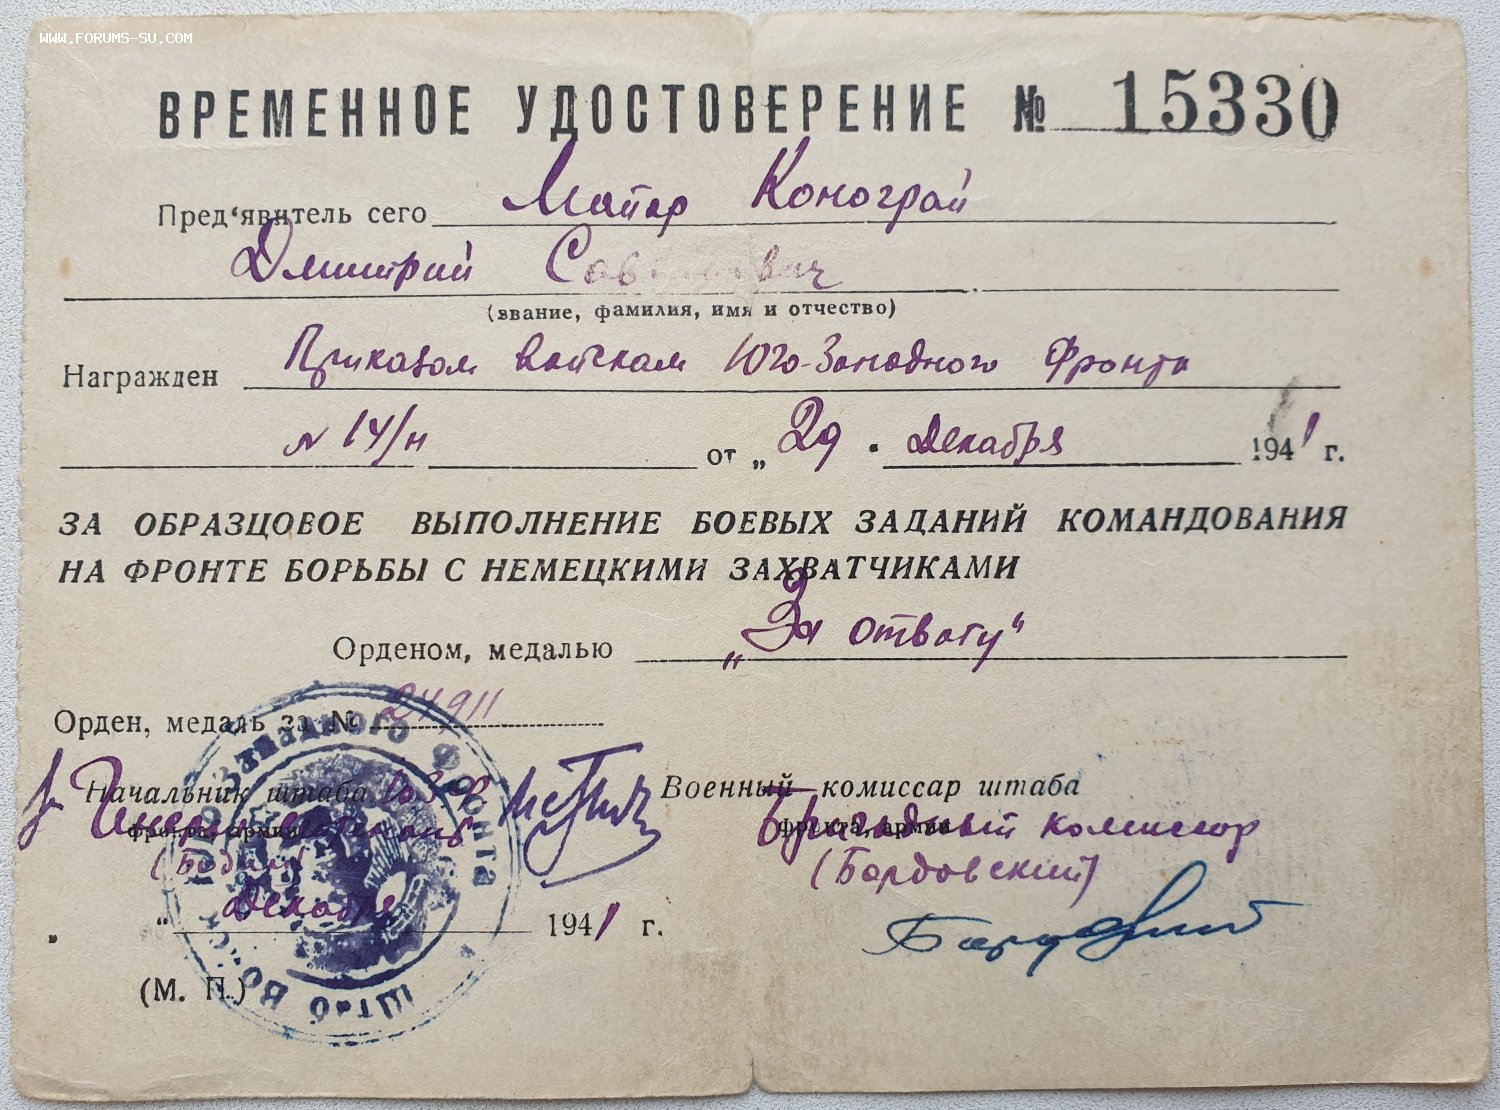 WWW.FORUMS-SU.COM
ВРЕМЕННОЕ УДОСТОВЕРЕНИЕ № 15330
Пред'явитель сего Майор Конограй
Дмитрий
(звание, фамилия, имя и отчество)
Награжден Приказом Войскам Юго-Западного Фронта
№ 14/н от „ 29 " Декабря 1941 г.
ЗА ОБРАЗЦОВОЕ ВЫПОЛНЕНИЕ БОЕВЫХ ЗАДАНИЙ КОМАНДОВАНИЯ
НА ФРОНТЕ БОРЬБЫ С НЕМЕЦКИМИ ЗАХВАТЧИКАМИ
Орденом, медалью „За отвагу"
Орден, медаль за № 24911
Начальник штаба ЮЗФ Военный комиссар штаба
фронта, армии фронта, армии
Бригадный комиссар
(Бодин) (Бордовский)
„ " Декабря 1941 г.
(М. П.)
Штаб Юго-Западного Фронта